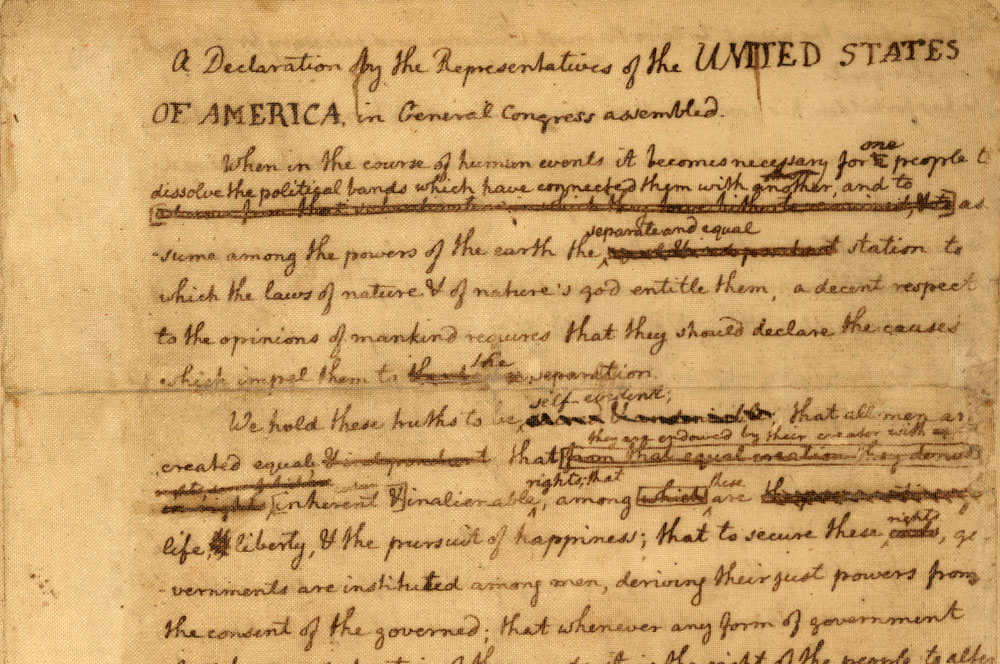 A Declaration by the Representatives of the UNITED STATES
OF AMERICA, in General Congress assembled.
one
When in the course of human events it becomes necessary for a people to
dissolve the political bands which have connected them with another, and to
as
separate and equal
-sume among the powers of the earth the station to
which the laws of nature & of nature's god entitle them, a decent respect
to the opinions of mankind requires that they should declare the causes
the
which impel them to separation.
self-evident;
We hold these truths to be that all men are
they are endowed by their creator with
created equal & independent that from that equal creation they derive
rights; that these
inherent & inalienable, among which are
rights
life, liberty, & the pursuit of happiness; that to secure these ends, go
-vernments are instituted among men, deriving their just powers from
the consent of the governed; that whenever any form of government
it is the right of the people to alter